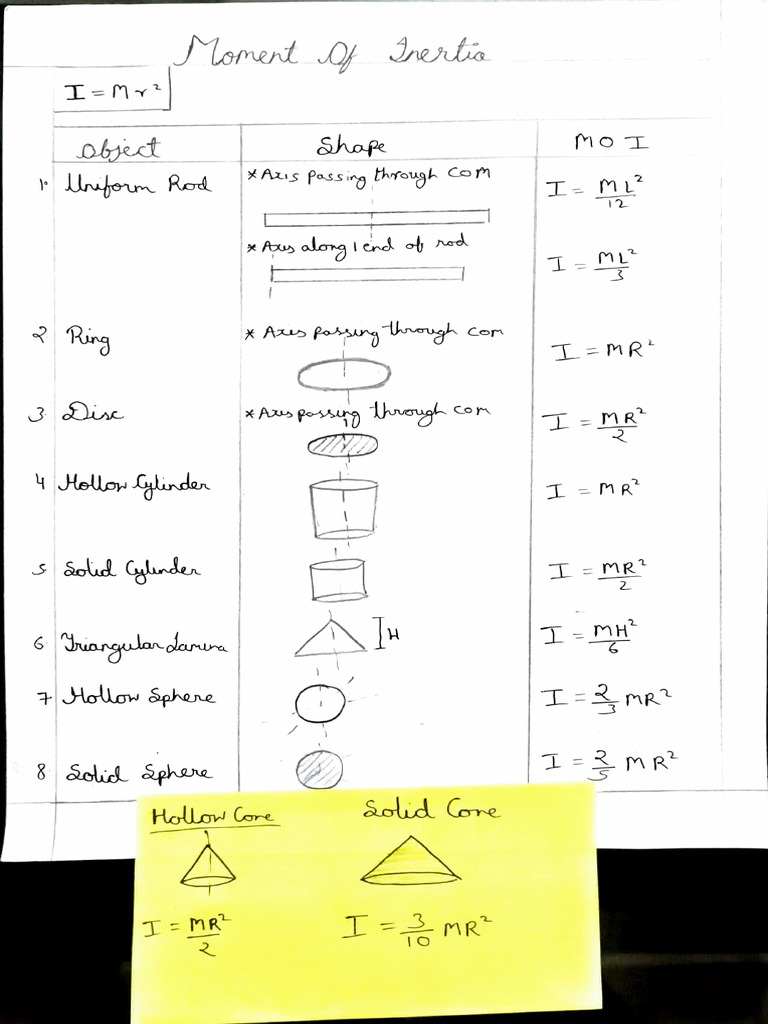 Moment Of Inertia
I = Mr²
Object Shape M O I
1. Uniform Rod * Axis passing through COM I = ML²/12
* Axis along 1 end of rod I = ML²/3
2 Ring * Axes passing through COM I = MR²
3. Disc * Axes passing through COM I = MR²/2
4 Hollow Cylinder I = MR²
5 Solid Cylinder I = MR²/2
6 Triangular Lamina H I = MH²/6
7 Hollow Sphere I = 2/3 MR²
8 Solid Sphere I = 2/5 MR²
Hollow Cone Solid Cone
I = MR²/2 I = 3/10 MR²